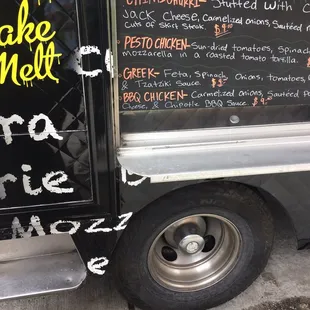 ake
Melt
ra
rie
Mozz
e
Stuffed with C
Jack Cheese, Carmelized onions, Sautéed
Cuts of Skirt Steak. $9.00
PESTO CHICKEN- Sun-dried tomatoes, Spinach
mozzarella in a roasted tomato tortilla.
GREEK- Feta, Spinach, Onions, tomatoes,
& Tzatziki Sauce
BBQ CHICKEN- Carmelized onions, Sautéed
Cheese, & Chipotle BBQ Sauce